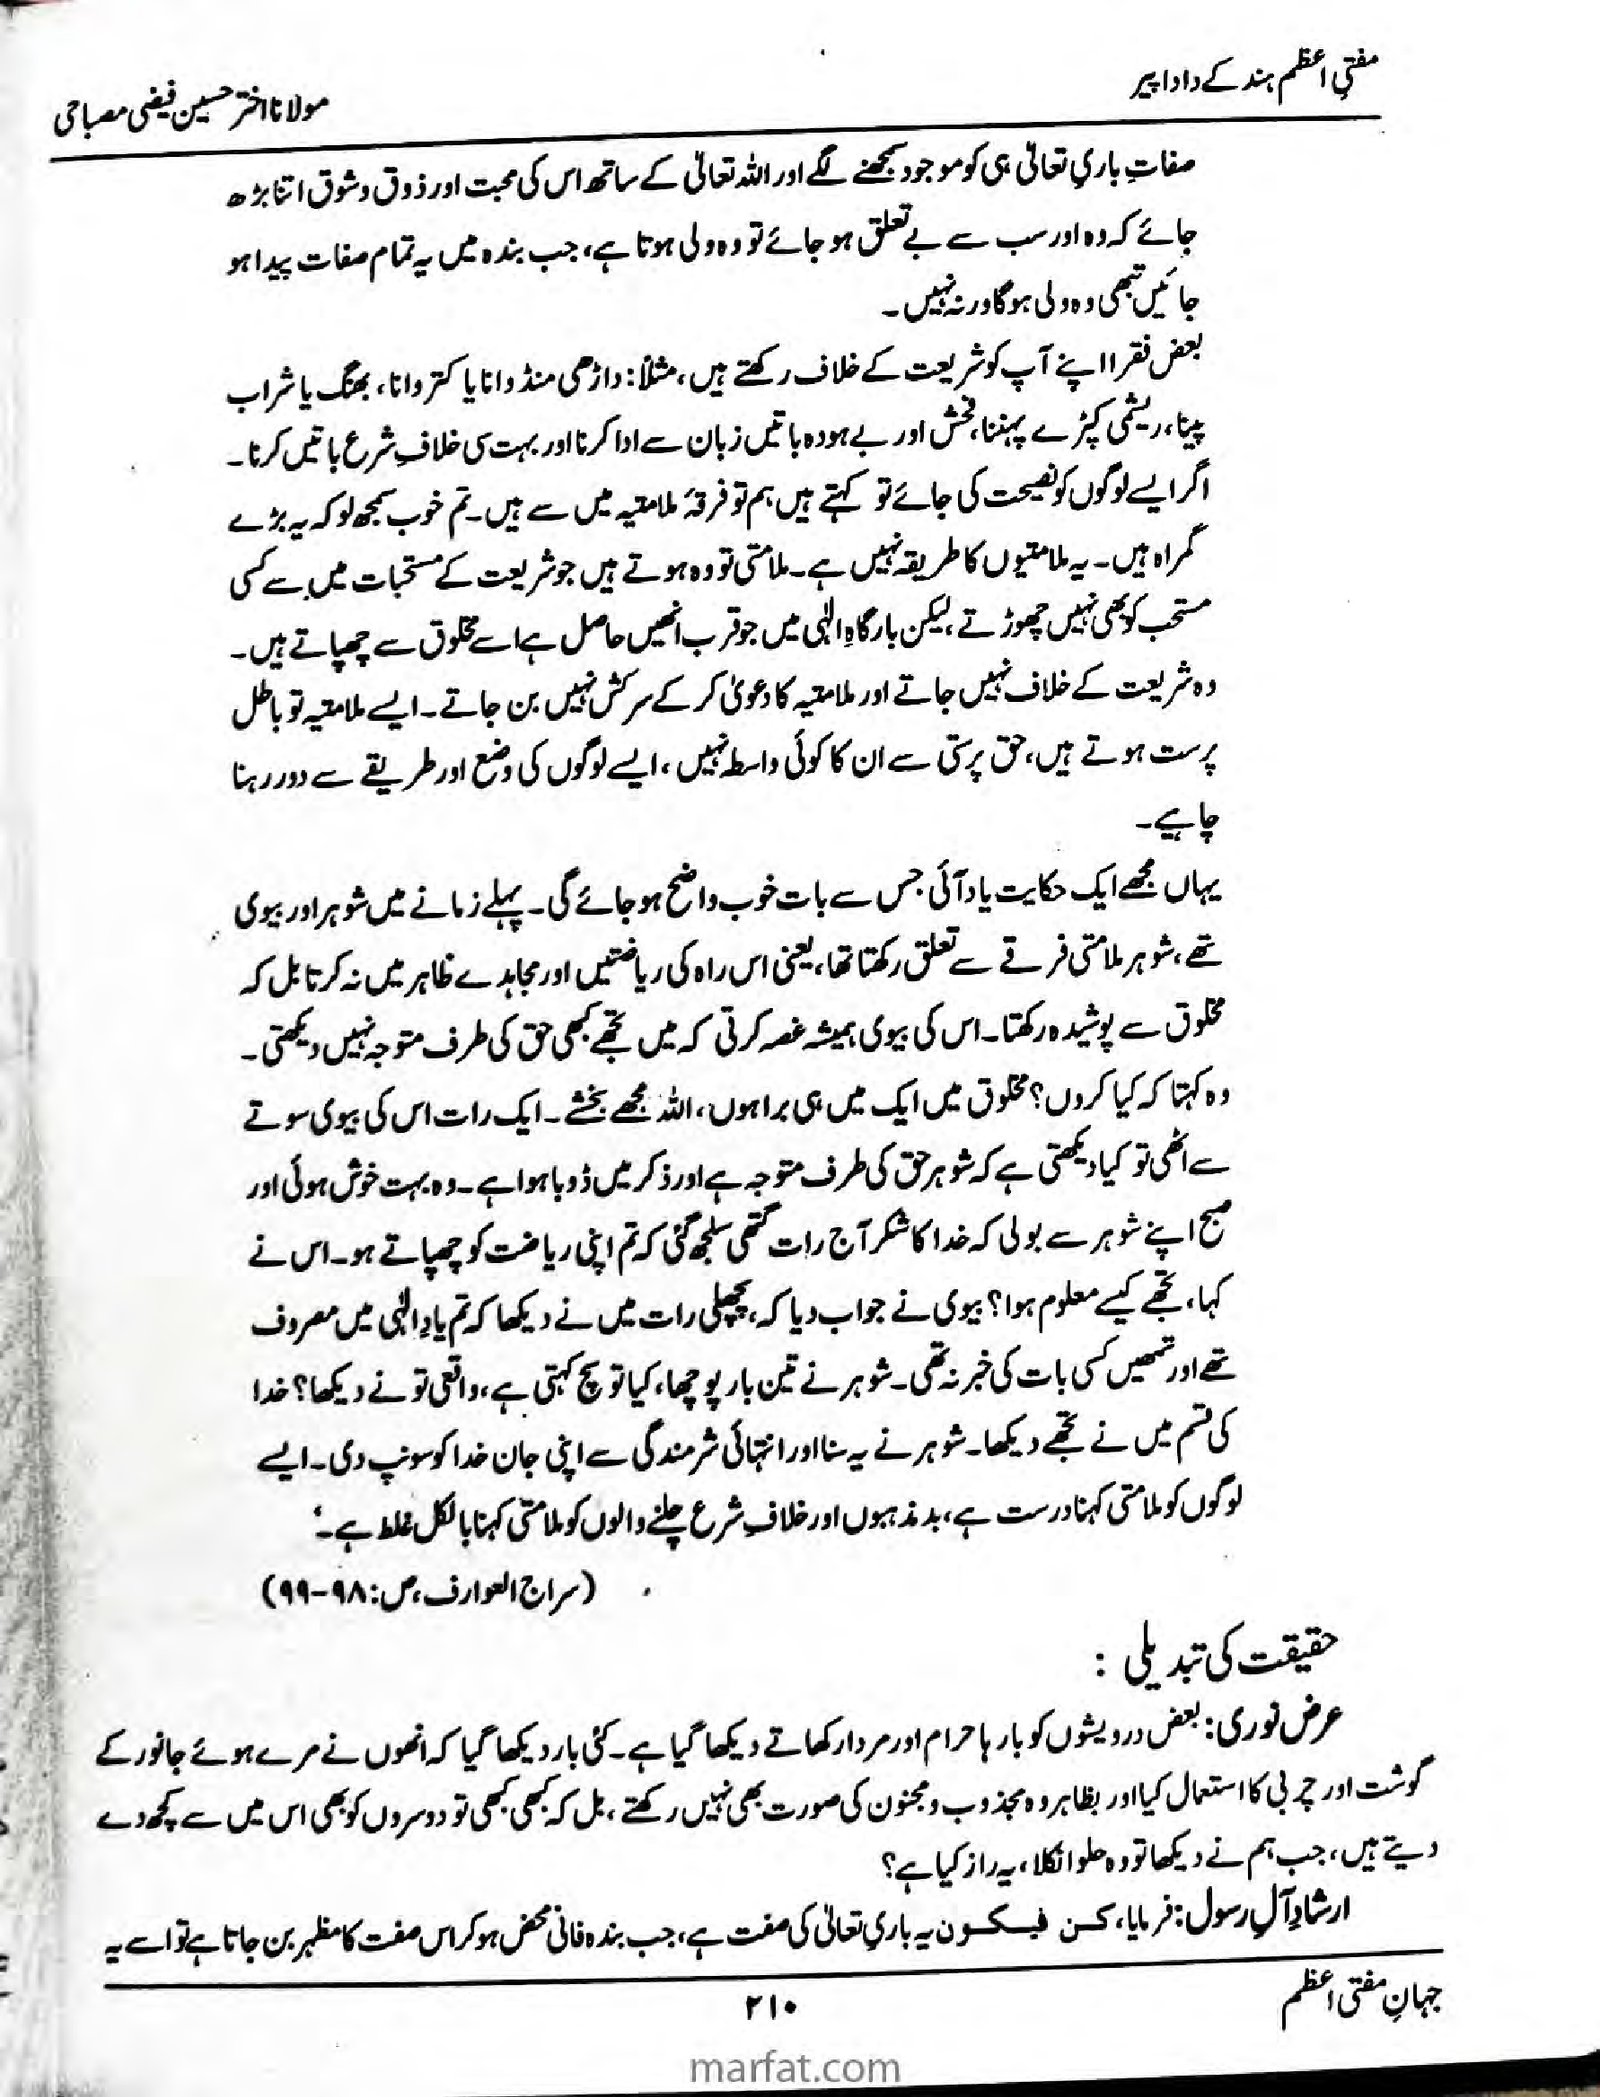 مفتیِ اعظم ہند کے دادا پیر
مولانا اختر حسین فیضی مصباحی
صفاتِ باریِ تعالیٰ ہی کو موجود سمجھنے لگے اور اللہ تعالیٰ کے ساتھ اس کی محبت اور ذوق و شوق اتنا بڑھ
جائے کہ وہ اور سب سے بے تعلق ہو جائے تو وہ ولی ہوتا ہے، جب بندہ میں یہ تمام صفات پیدا ہو
جائیں تبھی وہ ولی ہوگا ورنہ نہیں۔
بعض فقرا اپنے آپ کو شریعت کے خلاف رکھتے ہیں، مثلاً: داڑھی منڈوانا یا کتروانا، بھنگ یا شراب
پینا، ریشمی کپڑے پہننا، فحش اور بے ہودہ باتیں زبان سے ادا کرنا اور بہت سی خلافِ شرع باتیں کرنا۔
اگر ایسے لوگوں کو نصیحت کی جائے تو کہتے ہیں ہم تو فرقۂ ملامتیہ میں سے ہیں۔ تم خوب سمجھ لو کہ یہ بڑے
گمراہ ہیں۔ یہ ملامتیوں کا طریقہ نہیں ہے۔ ملامتی تو وہ ہوتے ہیں جو شریعت کے مستحبات میں سے کسی
مستحب کو بھی نہیں چھوڑتے، لیکن بارگاہِ الٰہی میں جو قرب انھیں حاصل ہے اسے مخلوق سے چھپاتے ہیں۔
وہ شریعت کے خلاف نہیں جاتے اور ملامتیہ کا دعویٰ کر کے سرکش نہیں بن جاتے۔ ایسے ملامتیہ تو باطل
پرست ہوتے ہیں، حق پرستی سے ان کا کوئی واسطہ نہیں، ایسے لوگوں کی وضع اور طریقے سے دور رہنا
چاہیے۔
یہاں مجھے ایک حکایت یاد آئی جس سے بات خوب واضح ہو جائے گی۔ پہلے زمانے میں شوہر اور بیوی
تھے، شوہر ملامتی فرقے سے تعلق رکھتا تھا، یعنی اس راہ کی ریاضتیں اور مجاہدے ظاہر میں نہ کرتا بل کہ
مخلوق سے پوشیدہ رکھتا۔ اس کی بیوی ہمیشہ غصہ کرتی کہ میں تجھے کبھی حق کی طرف متوجہ نہیں دیکھتی۔
وہ کہتا کہ کیا کروں؟ مخلوق میں ایک میں ہی برا ہوں، اللہ مجھے بخشے۔ ایک رات اس کی بیوی سوتے
سے اٹھی تو کیا دیکھتی ہے کہ شوہر حق کی طرف متوجہ ہے اور ذکر میں ڈوبا ہوا ہے۔ وہ بہت خوش ہوئی اور
صبح اپنے شوہر سے بولی کہ خدا کا شکر آج رات گتھی سلجھ گئی کہ تم اپنی ریاضت کو چھپاتے ہو۔ اس نے
کہا، تجھے کیسے معلوم ہوا؟ بیوی نے جواب دیا کہ، پچھلی رات میں نے دیکھا کہ تم یادِ الٰہی میں مصروف
تھے اور تمھیں کسی بات کی خبر نہ تھی۔ شوہر نے تین بار پوچھا، کیا تو سچ کہتی ہے، واقعی تو نے دیکھا؟ خدا
کی قسم میں نے تجھے دیکھا۔ شوہر نے یہ سنا اور انتہائی شرمندگی سے اپنی جان خدا کو سونپ دی۔ ایسے
لوگوں کو ملامتی کہنا درست ہے، بدمذہبوں اور خلافِ شرع چلنے والوں کو ملامتی کہنا بالکل غلط ہے۔‘
(سراج العوارف، ص: ۹۸-۹۹)
حقیقت کی تبدیلی :
عرض نوری: بعض درویشوں کو بارہا حرام اور مردار کھاتے دیکھا گیا ہے۔ کئی بار دیکھا گیا کہ انھوں نے مرے ہوئے جانور کے
گوشت اور چربی کا استعمال کیا اور بظاہر وہ مجذوب و مجنون کی صورت بھی نہیں رکھتے، بل کہ کبھی کبھی تو دوسروں کو بھی اس میں سے کچھ دے
دیتے ہیں، جب ہم نے دیکھا تو وہ حلوا نکلا، یہ راز کیا ہے؟
ارشادِ آلِ رسول: فرمایا، کن فیکون یہ باریِ تعالیٰ کی صفت ہے، جب بندہ فانی محض ہو کر اس صفت کا مظہر بن جاتا ہے تو اسے یہ
جہانِ مفتی اعظم
۲۱۰
marfat.com